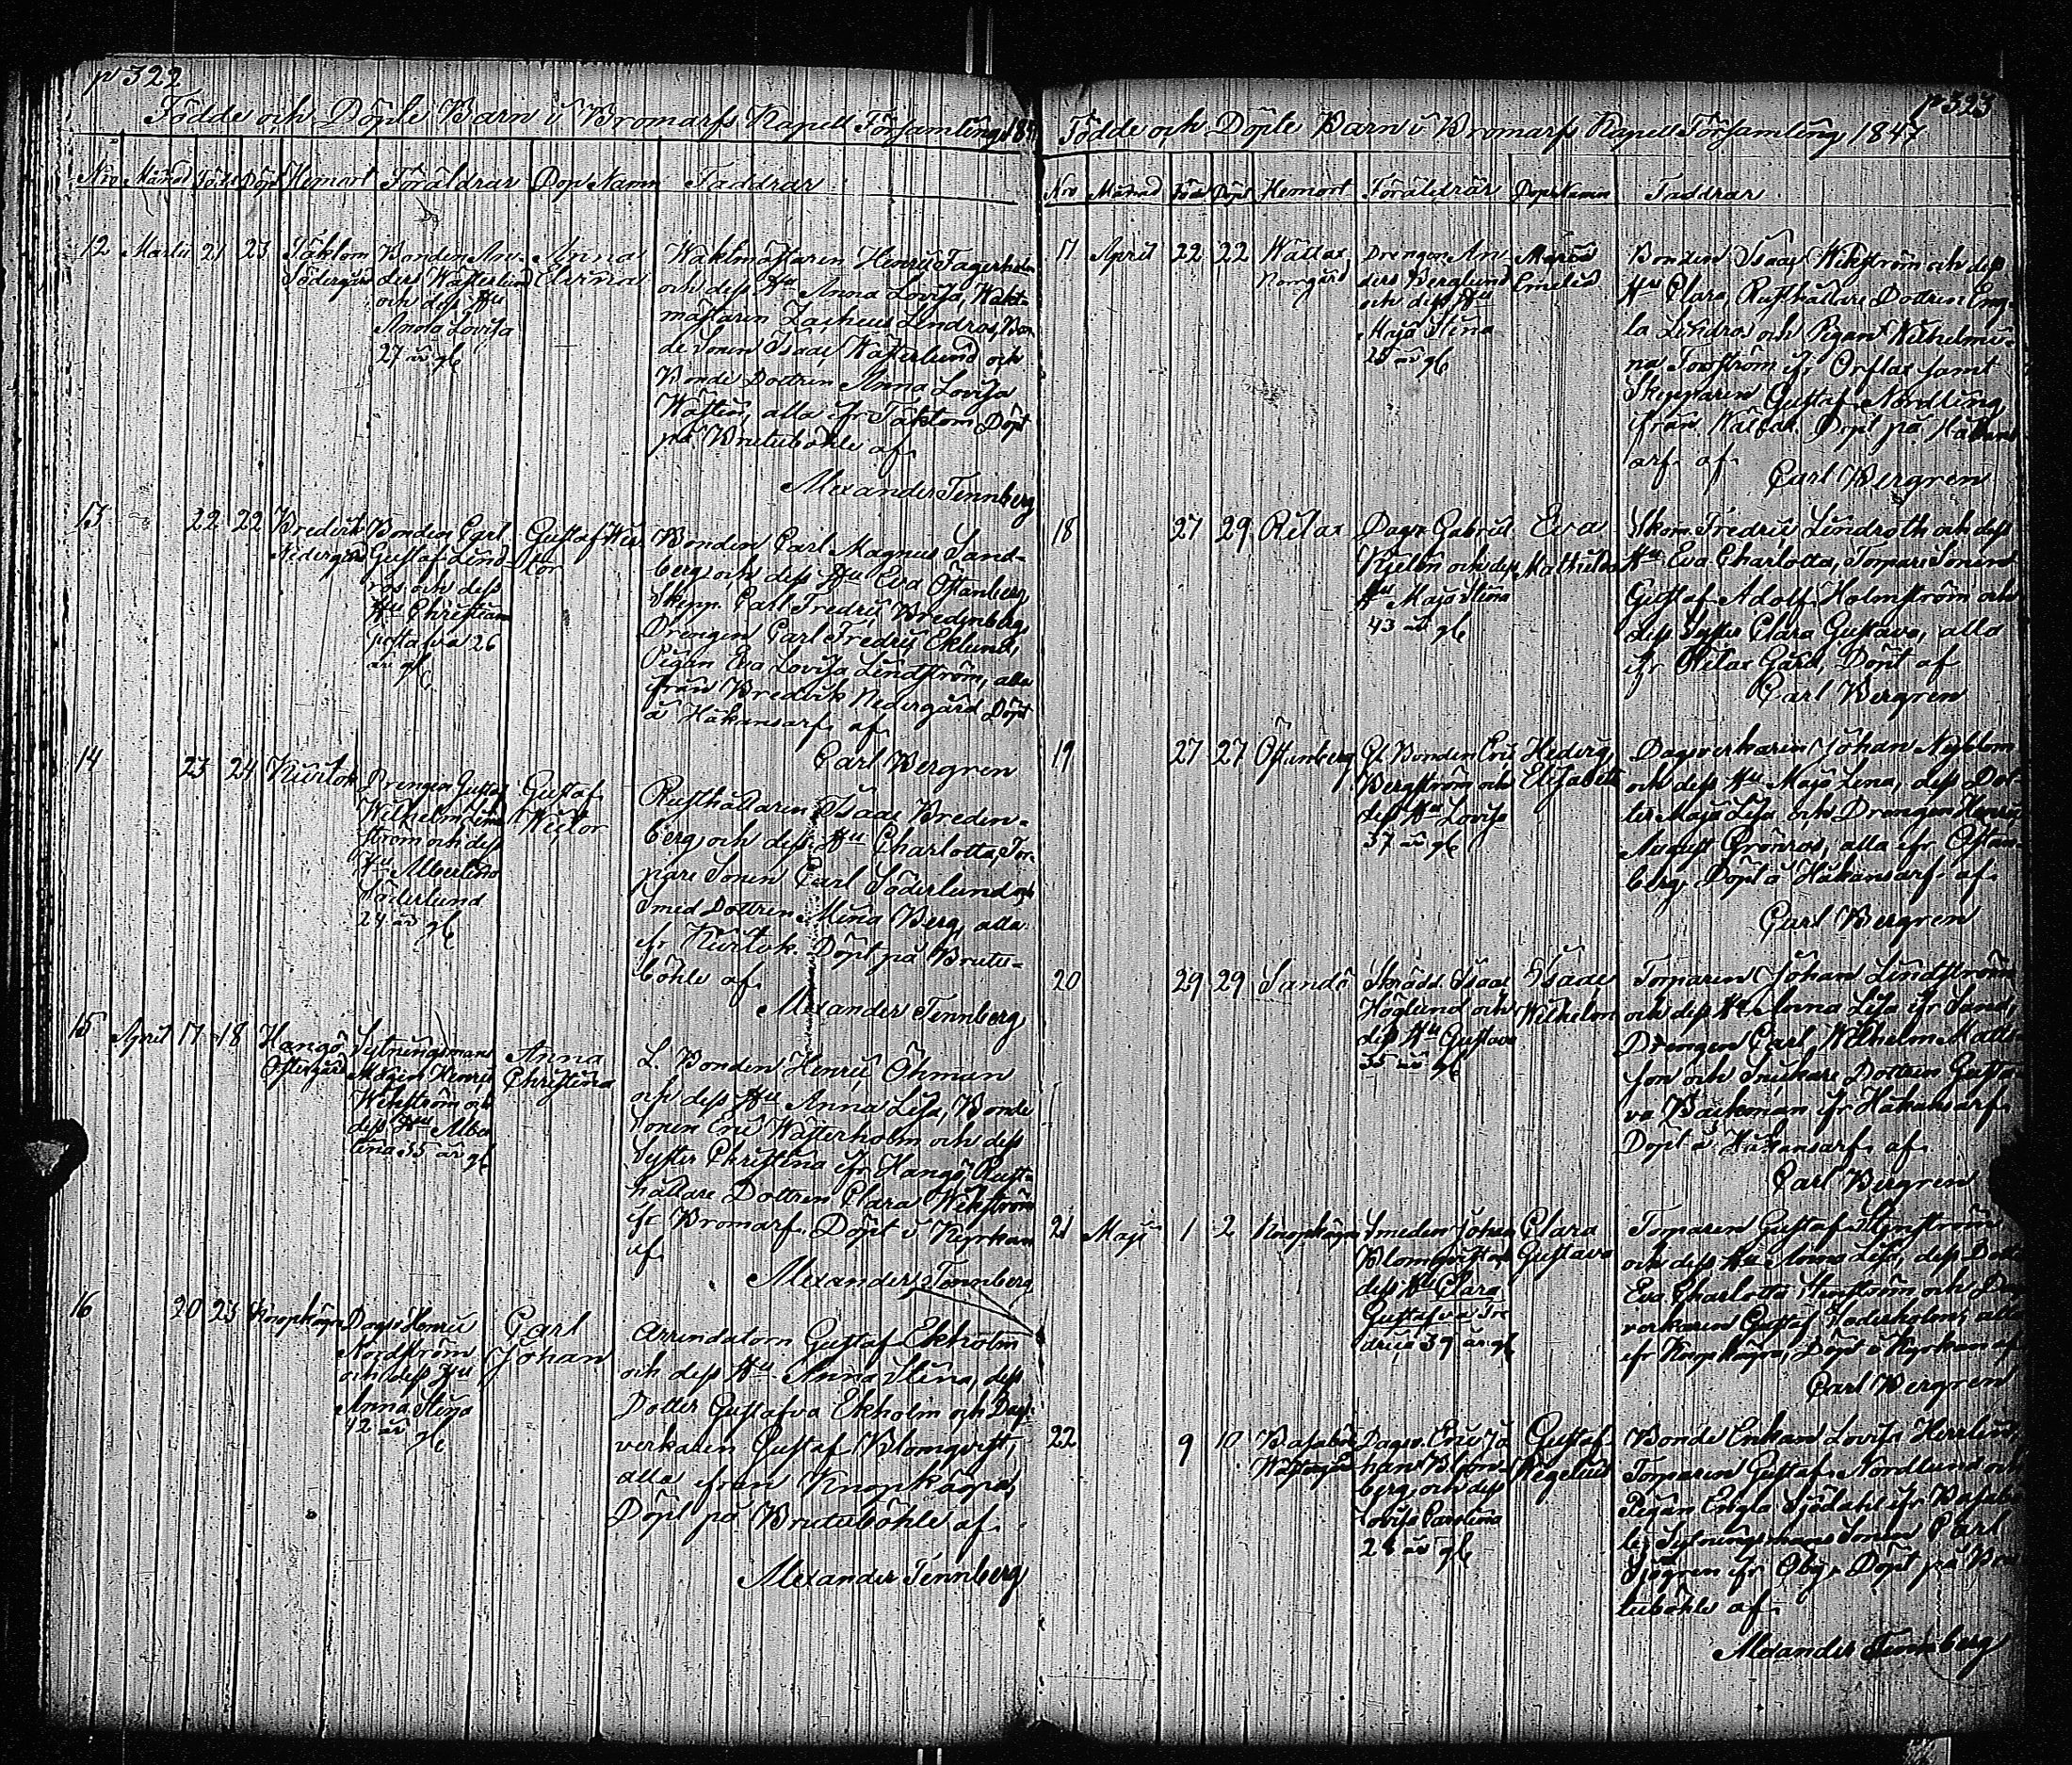 p 322
Födde och Döpte Barn i Bromarfs Kapell Församling 184
Nro Månad Född Döpt Hemort Föräldrar Dop Namn Faddrar
12 Martii 21 23
Täktom
Södergård
Bonden An-
ders Wästerlund
och dess Hu
Anna Lovisa
27 år gl
Anna
Elvina
Waktmästaren Henric Fagerholm
och dess Hu Anna Lovisa, Wakt-
mästaren Zacheus Lindros, Bon-
de Sonen Isaac Wästerlund och
Bonde Dottren Anna Lovisa
alla ifr Täktom Döpt
på Brutuböhle af
Alexander Tennberg
13 22 22
Bredvik
Nedergård
Bonden Carl
Gustaf Lind-
ros och dess
Hu Christiana
Gustafva 26
år gl
Gustaf Wic-
tor
Bonden Carl Magnus Sand-
berg och dess Hu Eva Östanberg,
Skepp. Carl Fredric Bredenberg,
Drengen Carl Fredric Eklund,
Pigan Eva Lovisa Lindström, alla
ifrån Bredvik Nedergård Döpt
å Håkansarf af
Carl Bergren
14 23 24
Kurtok
Drengen Gustaf
Wilhelm Lind-
ström och dess
Hu Albertina
Söderlund
24 år gl
Gustaf
Wictor
Rusthållaren Isaac Breden-
berg och dess Hu Charlotta, Tor-
pare Sonen Carl Söderlund och
Smed Dottren Mina Berg, alla
ifr Kurtok. Döpt på Brutu-
böhle af
Alexander Tennberg
15 April 17 18
Hangö
Östergård
Sytningsman
Mågen Henric
Wikström och
dess Hu Alber-
tina 35 år gl
Anna
Christina
L. Bonden Henric Öhman
och dess Hu Anna Lisa, Bonde
Sonen Eric Wästerholm och dess
Syster Christina ifr Hangö, Rust-
hållare Dottren Clara Wikström
ifr Bromarf. Döpt i Kyrkan
af
Alexander Tennberg
16 20 23
Knopkägra
Dagsv Henric
Nordström
och dess Hu
Anna Stina
42 år gl
Carl
Johan
Arrendatorn Gustaf Ekholm
och dess Hu Anna Stina, dess
Dotter Gustafva Ekholm och Dags-
verkaren Gustaf Blomqvist,
alla ifrån Knopkägra,
Döpt på Brutuböhle af
Alexander Tennberg
p 323
Födde och Döpte Barn i Bromarfs Kapell Församling 1847
Nro Månad Född Döpt Hemort Föräldrar Dop Namn Faddrar
17 April 22 22
Wättlax
Norrgård
Drengen An-
ders Berglund
och dess Hu
Maja Stina
28 år gl
Maria
Emelia
Bonden Isaac Wikström och dess
Hu Clara, Rusthållare Dottren Eng-
la Lindros och Pigan Wilhelmi-
na Forsström ifr Orslax samt
Skepparen Gustaf Nordlund
ifrån Wättlax. Döpt på Håkans-
arf af
Carl Bergren
18 27 29
Rilax
Dagv Gabriel
Kjelén och dess
Hu Maja Stina
43 år gl
Eva
Mathilda
Skom. Fredric Lindroth och dess
Hu Eva Charlotta, Torpare Sonen
Gustaf Adolf Holmström och
dess Syster Clara Gustava, alla
ifr Rilax Gård, Döpt af
Carl Bergren
19 27 27
Östanberg
Gl. Bonden Eric
Bergström och
dess Hu Lovisa
37 år gl
Hedvig
Elisabeth
Dagsverkaren Johan Nyblom
och dess Hu Maja Lena, dess Dot-
ter Maja Lisa och Drengen Henric
August Grönros, alla ifr Östan-
berg, Döpt å Håkansarf af
Carl Bergren
20 29 29
Sandö
Skrädd. Isaac
Höglund och
dess Hu Gustava
35 år gl
Isaac
Wilhelm
Torparen Johan Lindström
och dess Hu Anna Lisa ifr Sandö,
Drengen Carl Wilhelm Matts-
son och Snickare Dottren Gusta-
va Backman ifr Håkansarf.
Döpt å Håkansarf af
Carl Bergren
21 Maji 1 2
Knopkägra
Smeden Johan
Blomqvist och
dess Hu Clara
Gustafva Fre-
drica 39 år gl
Clara
Gustava
Torparen Gustaf Stenström
och dess Hu Anna Lisa, dess Dotter
Eva Charlotta Stenström och Dags-
verkaren Gustaf Söderholm, alla
ifr Knopkägra, Döpt i Kyrkan af
Carl Bergren
22 9 10
Basaböle
Wästergård
Dagsv. Eric Jo-
han Blom-
berg och dess
Lovisa Carolina
28 år gl
Gustaf
Wigelius
Bonde Enkan Lovisa
Torparen Gustaf Nordlund och
Pigan Engla Sjödahl ifr Basabö-
le, Sytningsmans Sonen Carl
Sjögren ifr Öby, Döpt på Bru-
tuböhle af
Alexander Tennberg